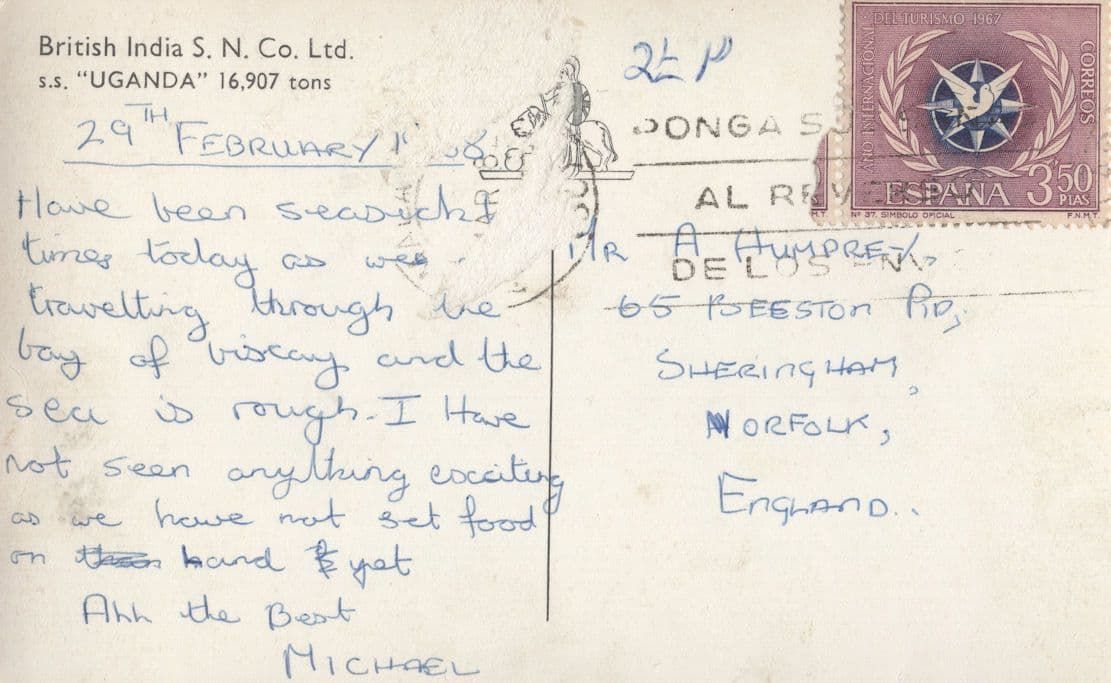 British India S. N. Co. Ltd.
s.s. "UGANDA" 16,907 tons
29TH FEBRUARY
Have been seasick
times today as
travelling through the
bay of viscay and the
sea is rough. I Have
not seen anything exciting
as we have not set food
on land yet
All the Best
MICHAEL
DEL TURISMO 1967
AÑO INTERNACIONAL
CORREOS
ESPAÑA 3'50
PTAS
Nº 37. SIMBOLO OFICIAL
F.N.M.T
PONGA
AL
DE LOS
A HUMPREY,
65 BEESTON RD,
SHERINGHAM,
NORFOLK,
ENGLAND..